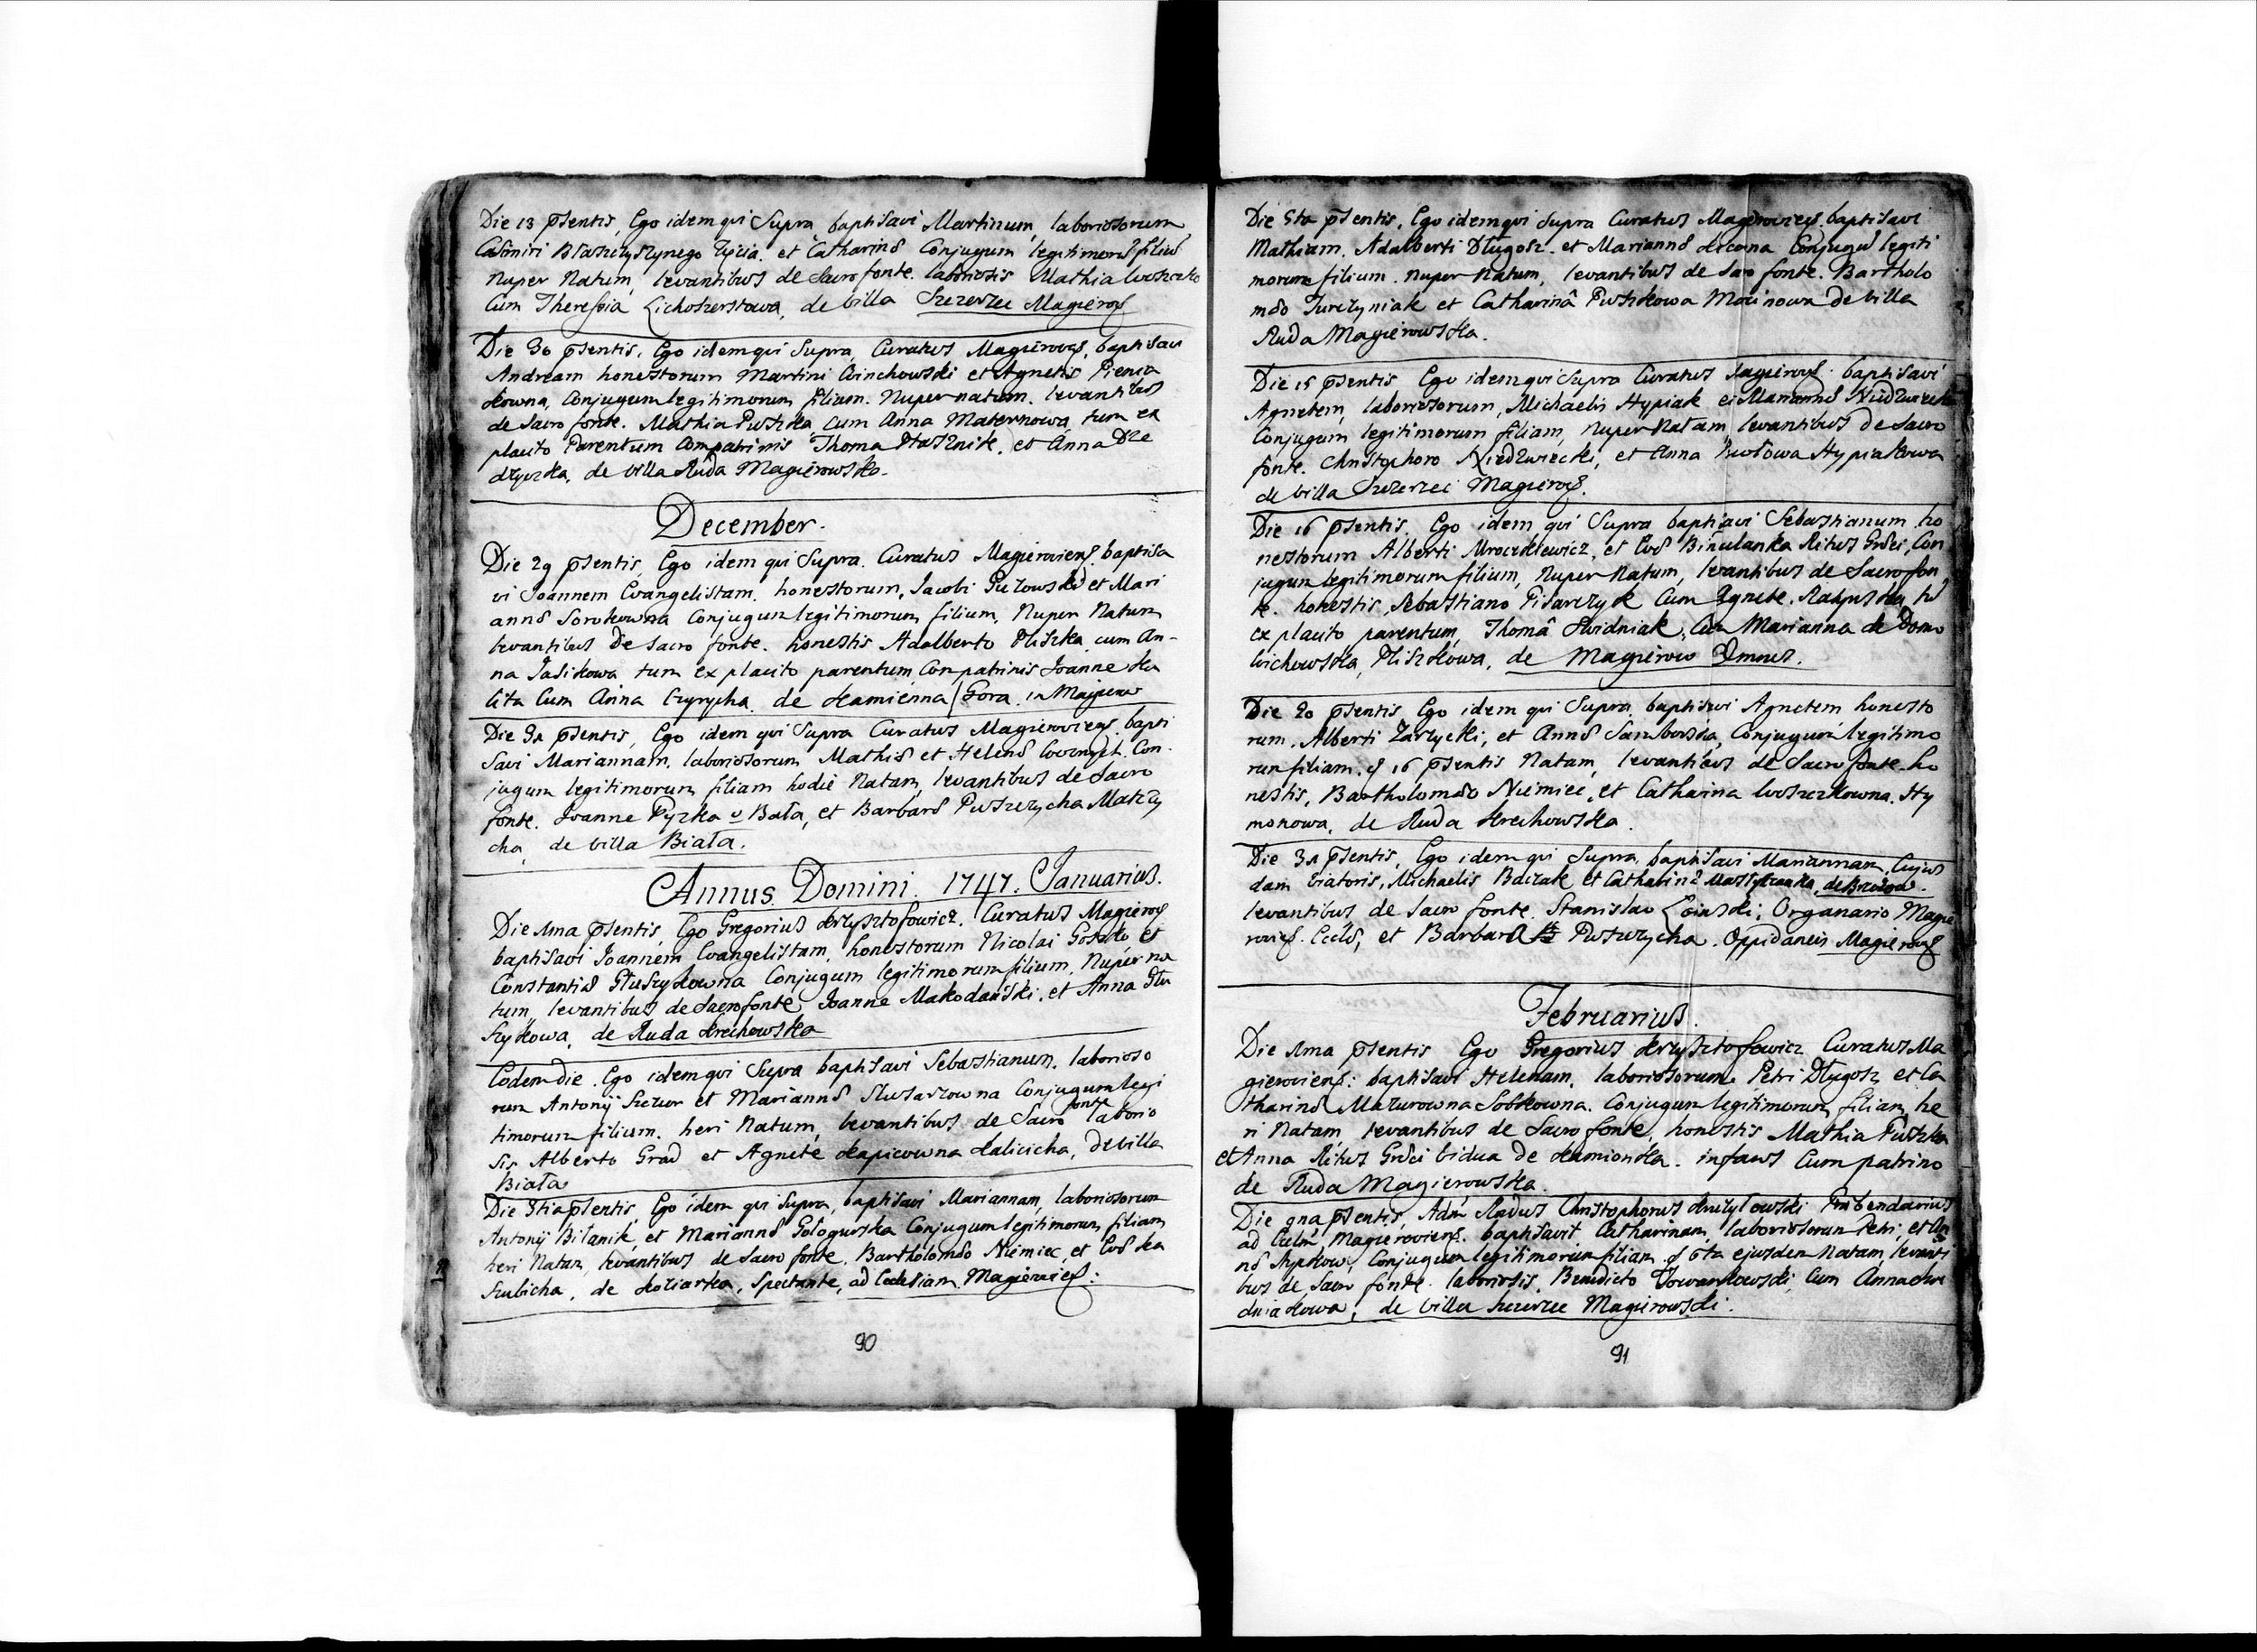 Die 13 pńsentis, Ego idem qui Supra baptisavi Martinum, laboriosorum
Casimiri Błaszczyszynego Zięcia. et Catharinæ Conjugum legitimorũ filiũ
Nuper Natum, levantibus de Sacro fonte. laboriosis Mathia
Cum Theressia Lichoszerstowa, de villa Szczerzec Magierov
Die 30 pńsentis. Ego idem qui Supra, Curatus Magierovień. baptisavi
Andream honestorum Martini Winchowski et Agnetis Pienia
kowna, Conjugum legitimorum filium. Nuper natum. levantibus
de Sacro fonte. Mathia Puszka, Cum Anna Maternowa, tum ex
placito Parentum Compatrinis Thoma Stasznik, et Anna Dze
dzyczka, de villa Ruda Magierowska.
December.
Die 29 pńsentis, Ego idem qui Supra. Curatus Magieroviens. baptisa
vi Joannem Evangelistam. honestorum, Jacobi Guzowski et Mari
annæ Sorokowna Conjugum legitimorum filium, Nuper Natum
levantibus De Sacro fonte. honestis Adalberto Pliszka cum An-
na Jasikowa tum ex placito parentum Compatrinis Joanne Ka
lita Cum Anna Czyrycha, de Kamienna Gora in Magierow
Die 31 pńsentis, Ego idem qui Supra Curatus Magieroviens. bapti
savi Mariannam, laboriosorum Mathiæ et Helenæ Con-
jugum legitimorum filiam hodie Natam, levantibus de Sacro
fonte. Joanne Pyzka Bała, et Barbara Puszczycha Matczy
cha, de villa Biała.
Annus Domini. 1747. Januarius.
Die 1ma pńsentis, Ego Gregorius Krzysztofowicz. Curatus Magierov
baptisavi Joannem Evangelistam, honestorum Nicolai Gorski, et
Constantiæ Głuszykowna Conjugum legitimorum filium. Nuper na
tum, levantibus de Sacro fonte Joanne Makodański, et Anna Głu
szykowa, de Ruda Krechowska
Eodem die. Ego idem qui Supra baptisavi Sebastianum, laborioso
rum Antonij Szczur et Mariannæ Slusarzowna Conjugum legi
timorum filium. heri Natum, levantibus de Sacro fonte laborio
sis Alberto Grad et Agnete Kapicowna Kalicicha, de villa
Biała
Die 3tia pńsentis, Ego idem qui Supra, baptisavi Mariannam, laboriosorum
Antonij Bilanik, et Mariannæ Gołogurska Conjugum legitimorum filiam
heri Natam, levantibus de Sacro fonte. Bartholomæo Niemiec et Eva Ka
szubicha, de Kotiarka, Spectante, ad Ecclesiam Magierovień:
90
Die 5ta pńsentis, Ego idem qui Supra Curatus Magieroviens. baptisavi
Mathiam. Adalberti Długosz. et Mariannæ Conjugũ legiti
morum filium. nuper Natum, levantibus de Sacro fonte. Bartholo
mæo Jurczyniak et Catharinâ Puszkowa Mocinowa de villa
Ruda Magierowska.
Die 15 pńsentis Ego idem qui Supra Curatus Magierovs. baptisavi
Agnetem, laboriosorum, Michaelis Hypiak et Mariannæ Niedzwiecka
Conjugum legitimorum filiam, Nuper Natam, levantibus de Sacro
fonte. Christophoro Niedzwiecki, et Anna Hypiakowa
de villa Szczerzec Magierov.
Die 16 pńsentis, Ego idem qui Supra baptisavi Sebastianum ho
nestorum Alberti Mroczkiewicz, et Evæ Binulanka Ritus Græci, Con
jugum legitimorum filium, Nuper Natum, levantibus de Sacro fon
te. honestis, Sebastiano Pisarczyk Cum Agnete tũ
ex placito parentum, Thomâ Swidniak, Cum Marianna de Domo
Wichowska, Pliszkowa, de Magierow Omnes.
Die 20 pńsentis, Ego idem qui Supra, baptisavi Agnetem honesto
rum, Alberti Zarzycki, et Annæ Samborska, Conjugum legitimo
rum filiam, d 16 pńsentis Natam, levantibus de Sacro fonte. ho
nestis, Bartholomæo Niemiec, et Catharina Woszczkowna. Hy
monowa, de Ruda Krechowska.
Die 31 pńsentis, Ego idem qui Supra, baptisavi Mariannam, Cujus
dam Viatoris, Michaelis Baczak et Catharinæ de Brzozow.
levantibus, de Sacro fonte. Stanislao Łoinski, Organario Magie
rovień. Eccłæ, et Barbara Puszczycha. Oppidaneis Magierovs
Februarius.
Die 1ma pńsentis Ego Gregorius Krzysztofowicz Curatus Ma
gieroviens: baptisavi Helenam, laboriosorum Petri Długosz et Ca
tharinæ Mazurowna Sobkowna. Conjugum legitimorum filiam, he
ri Natam, levantibus de Sacro fonte, honestis Mathia Puszka
et Anna Ritus Græci vidua de Kamionka. infans Cum patrino
de Ruda Magierowska.
Die 9na pńsentis, Adm Rńdus Christophorus Præbendarius
ad Ecclm Magieroviens. baptisavit Catharinam, laboriosorum Petri, et An
næ Conjugum legitimorum filiam d 6ta ejusdem Natam, levanti
bus de Sacro fonte. laboriosis, Benedicto Towarkowski, Cum Anna Swi
dniakowa, de villa Szczerzec Magierowski.
91